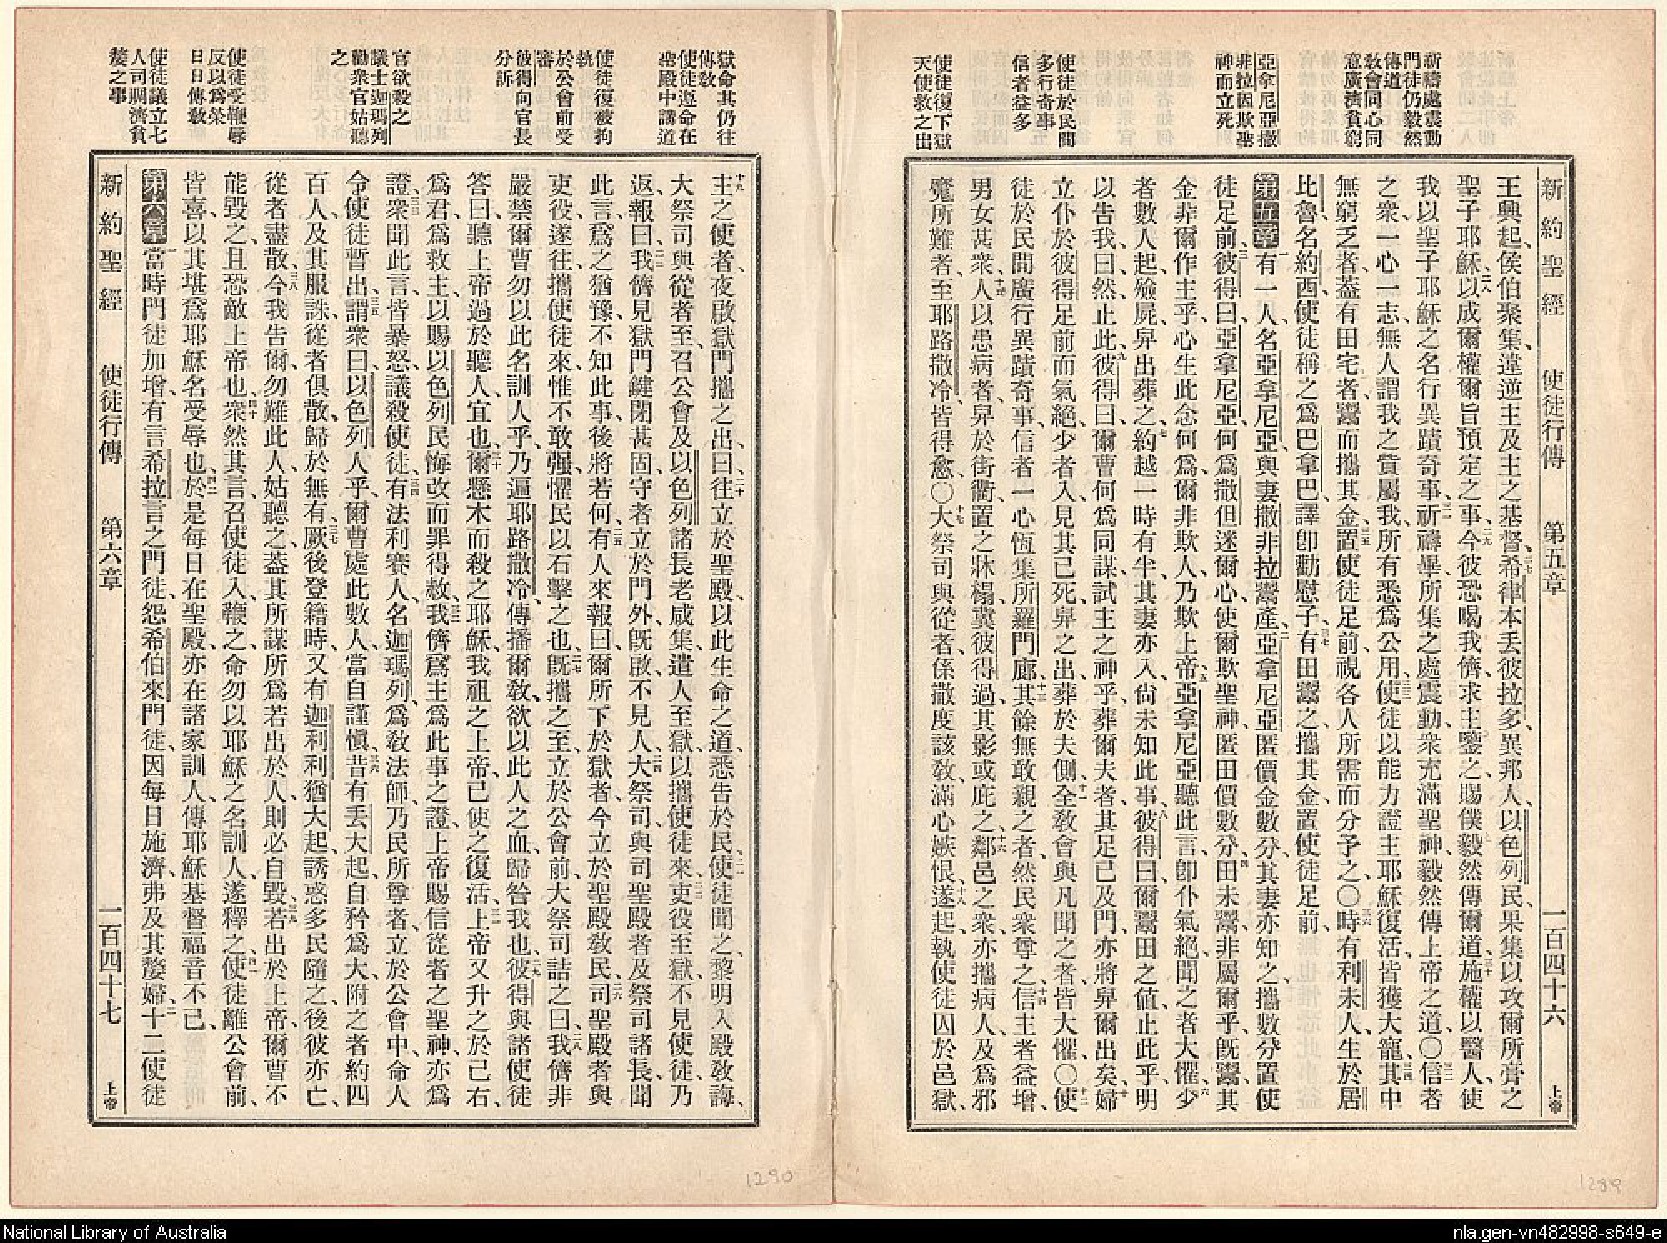 新禱處震動
門徒仍毅然
傳道
教會同心同
意廣濟貧窮
亞拿尼亞撒
非拉因欺聖
神而立死
使徒於民間
多行奇事
信者益多
使徒復下獄
天使救之出
新約聖經 使徒行傳 第五章 一百四十六 上帝
王興起、侯伯聚集、違逆主及主之基督、希律本丟彼拉多、異邦人、以色列民、果集以攻爾所膏之
聖子耶穌、以成爾權爾旨預定之事、今彼恐喝我儕、求主鑒之、賜僕毅然傳爾道、施權以醫人、使
我以聖子耶穌之名、行異蹟奇事、祈禱畢、所集之處震動、衆充滿聖神、毅然傳上帝之道、〇信者
之衆、一心一志、無人謂我之貲屬我、所有悉爲公用、使徒以能力證主耶穌復活、皆獲大寵、其中
無窮乏者、蓋有田宅者、鬻而攜其金、置使徒足前、視各人所需而分予之、〇時有利未人、生於居
比魯、名約西、使徒稱之爲巴拿巴、譯卽勸慰子、有田鬻之、攜其金、置使徒足前、
第五章 有一人名亞拿尼亞、與妻撒非拉鬻產、亞拿尼亞匿價金數分、其妻亦知之、攜數分置使
徒足前、彼得曰、亞拿尼亞、何爲撒但迷爾心、使爾欺聖神、匿田價數分、田未鬻、非屬爾乎、旣鬻、其
金非爾作主乎、心生此念何爲、爾非欺人、乃欺上帝、亞拿尼亞聽此言、卽仆氣絕、聞之者大懼、少
者數人起、殮屍、舁出葬之、約越一時有半、其妻亦入、尙未知此事、彼得曰、爾鬻田之値止此乎、明
以告我、曰、然、止此、彼得曰、爾曹何爲同謀試主之神乎、葬爾夫者、其足已及門、亦將舁爾出矣、婦
立仆於彼得足前而氣絕、少者入、見其已死、舁之出、葬於夫側、全教會與凡聞之者、皆大懼、〇使
徒於民間廣行異蹟奇事、信者一心、恆集所羅門廊、其餘無敢親之者、然民衆尊之、信主者益增、
男女甚衆、人以患病者、舁於街衢、置之牀榻、冀彼得過、其影或庇之、鄰邑之衆、亦攜病人及爲邪
魔所難者、至耶路撒冷、皆得愈、〇大祭司與從者、係撒度該教、滿心嫉恨、遂起、執使徒、囚於邑獄、
獄命其仍往
傳教
使徒遵命在
聖殿中講道
使徒復被拘
執
於公會前受
審
彼得向官長
分訴
官欲殺之
議士迦瑪列
勸衆官姑聽
之
使徒受鞭辱
反以爲榮
日日傳教
使徒議立七
人司賙濟貧
嫠之事
主之使者、夜啟獄門、攜之出、曰、往立於聖殿、以此生命之道、悉告於民、使徒聞之、黎明入殿教誨、
大祭司與從者至、召公會及以色列諸長老咸集、遣人至獄、以攜使徒來、吏役至獄、不見使徒、乃
返報曰、我儕見獄門鍵閉甚固、守者立於門外、旣啟、不見人、大祭司與司聖殿者、及祭司諸長、聞
此言、爲之猶豫、不知此事後將若何、有人來報曰、爾所下於獄者、今立於聖殿教民、司聖殿者與
吏役遂往、攜使徒來、惟不敢强、懼民以石擊之也、旣攜之至、立於公會前、大祭司詰之曰、我儕非
嚴禁爾曹、勿以此名訓人乎、乃遍耶路撒冷傳播爾教、欲以此人之血、歸咎我也、彼得與諸使徒
答曰、聽上帝過於聽人宜也、爾懸木而殺之耶穌、我祖之上帝已使之復活、上帝又升之於己右、
爲君爲救主、以賜以色列民悔改而罪得赦、我儕爲主爲此事之證、上帝賜信從者之聖神、亦爲
證、衆聞此言、皆暴怒、議殺使徒、有法利賽人、名迦瑪列、爲教法師、乃民所尊者、立於公會中、命人
令使徒暫出、謂衆曰、以色列人乎、爾曹處此數人、當自謹慎、昔有丟大起、自矜爲大、附之者約四
百人、及其服誅、從者俱散、歸於無有、厥後登籍時、又有迦利利猶大起、誘惑多民隨之、後彼亦亡、
從者盡散、今我告爾、勿難此人、姑聽之、蓋其所謀所爲、若出於人、則必自毀、若出於上帝、爾曹不
能毀之、且恐敵上帝也、衆然其言、召使徒入、鞭之、命勿以耶穌之名訓人、遂釋之、使徒離公會前、
皆喜、以其堪爲耶穌名受辱也、於是每日在聖殿、亦在諸家訓人、傳耶穌基督福音不已、
第六章 當時門徒加增、有言希拉言之門徒、怨希伯來門徒、因每日施濟、弗及其嫠婦、十二使徒
新約聖經 使徒行傳 第六章 一百四十七 上帝
1290
1289
National Library of Australia
nla.gen-vn482998-s649-e